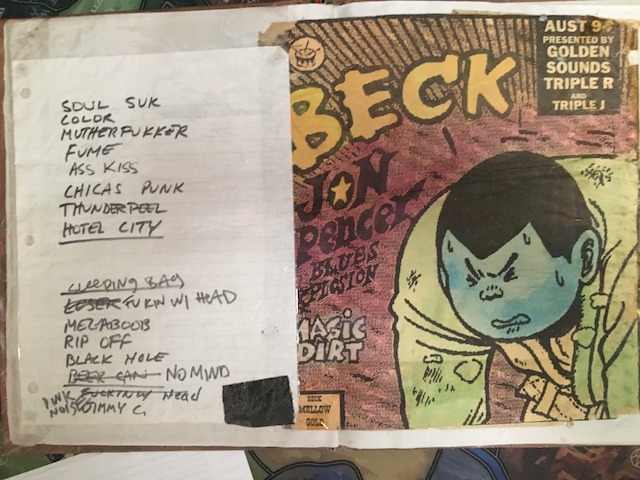 SOUL SUK
COLOR
MUTHERFUKKER
FUME
ASS KISS
CHICAS PUNK
THUNDERPEEL
HOTEL CITY
SLEEPING BAG
LOSER FUKIN W/ HEAD
MEGABOOB
RIP OFF
BLACK HOLE
BEER CAN NO MIND
PINK FUCKIN W/ Head
NOISE JIMMY C.
AUST 94
PRESENTED BY
GOLDEN
SOUNDS
TRIPLE R
AND
TRIPLE J
BECK
JON
SPENCER
BLUES
EXPLOSION
MAGIC
DIRT
BECK
MELLOW
GOLD